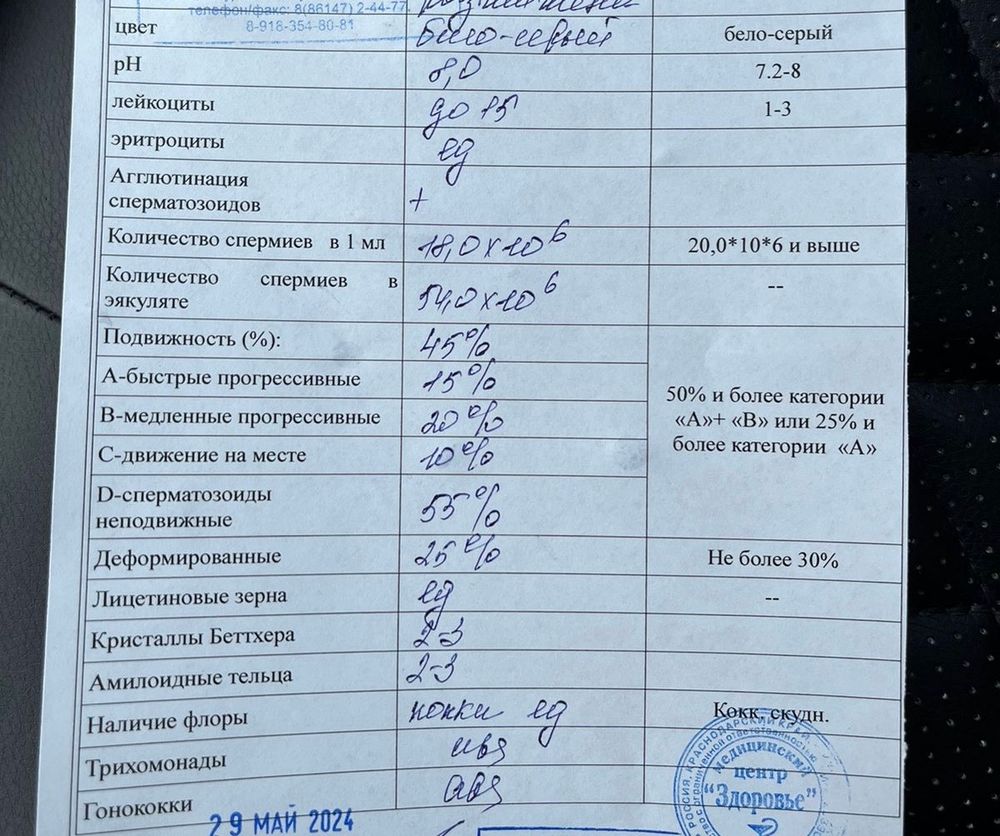 телефон/факс: 8(86147) 2-44-77
8-918-354-80-81
цвет бело-серый бело-серый
pH 8,0 7.2-8
лейкоциты до 15 1-3
эритроциты ед
Агглютинация
сперматозоидов +
Количество спермиев в 1 мл 18,0x10 6 20,0*10*6 и выше
Количество спермиев в
эякуляте 54,0x10 6 --
Подвижность (%): 45%
А-быстрые прогрессивные 15%
В-медленные прогрессивные 20%
С-движение на месте 10%
D-сперматозоиды
неподвижные 55%
50% и более категории
«А»+ «В» или 25% и
более категории «А»
Деформированные 25% Не более 30%
Лицетиновые зерна ед --
Кристаллы Беттхера 2-3
Амилоидные тельца 2-3
Наличие флоры кокки ед Кокк. скудн.
Трихомонады
Гонококки
29 МАЙ 2024
РОССИЯ, КРАСНОДАРСКИЙ КРАЙ
ограниченной ответственностью
Медицинский
центр
"Здоровье"